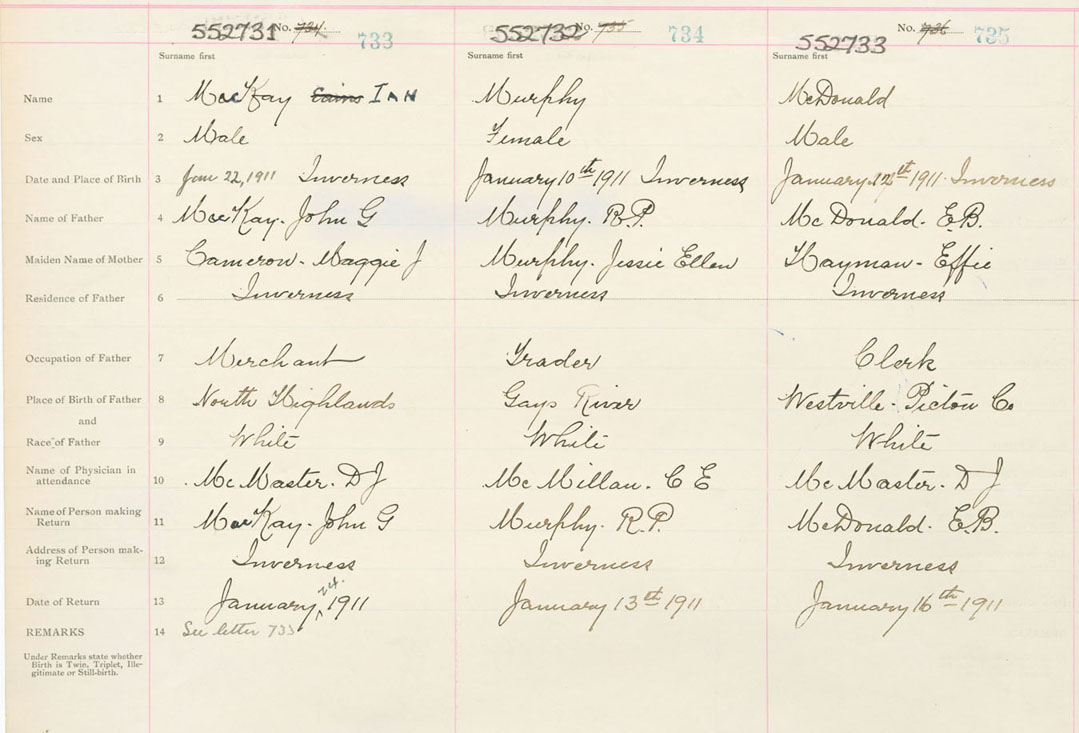 552731 No. 734. 733 552732 No. 735 734 552733 No. 736 735
Surname first Surname first Surname first
Name 1 MacKay Cains IAN Murphy McDonald
Sex 2 Male Female Male
Date and Place of Birth 3 Jan 22, 1911 Inverness January 10th 1911 Inverness January 12th 1911 Inverness
Name of Father 4 MacKay. John G Murphy. R.P. McDonald. E.B.
Maiden Name of Mother 5 Cameron - Maggie J Murphy. Jessie Ellen Hayman - Effie
Residence of Father 6 Inverness Inverness Inverness
Occupation of Father 7 Merchant Trader Clerk
Place of Birth of Father 8 North Highlands Gays River Westville - Pictou Co
and
Race of Father 9 White White White
Name of Physician in
attendance 10 McMaster. D J McMillan. C E McMaster. D J
Name of Person making
Return 11 MacKay. John G Murphy. R.P. McDonald. E.B.
Address of Person mak-
ing Return 12 Inverness Inverness Inverness
Date of Return 13 January 24. 1911 January 13th 1911 January 16th 1911
REMARKS 14 See letter 733
Under Remarks state whether
Birth is Twin, Triplet, Ille-
gitimate or Still-birth.